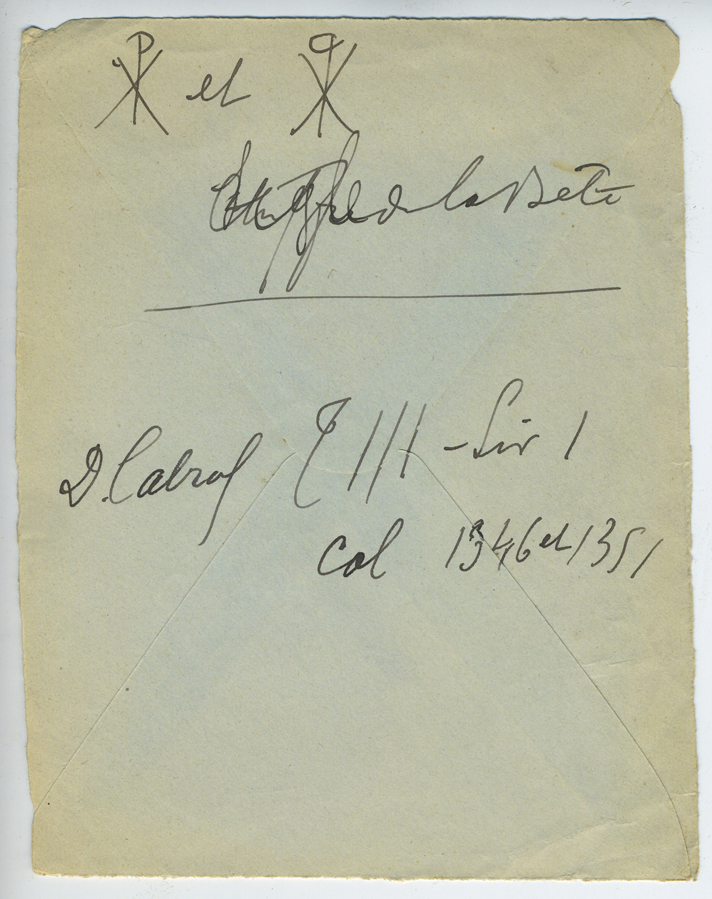 ☧ et ☧
de la Bête
D. Cabrol T III - Liv 1
col 1346 et 1351